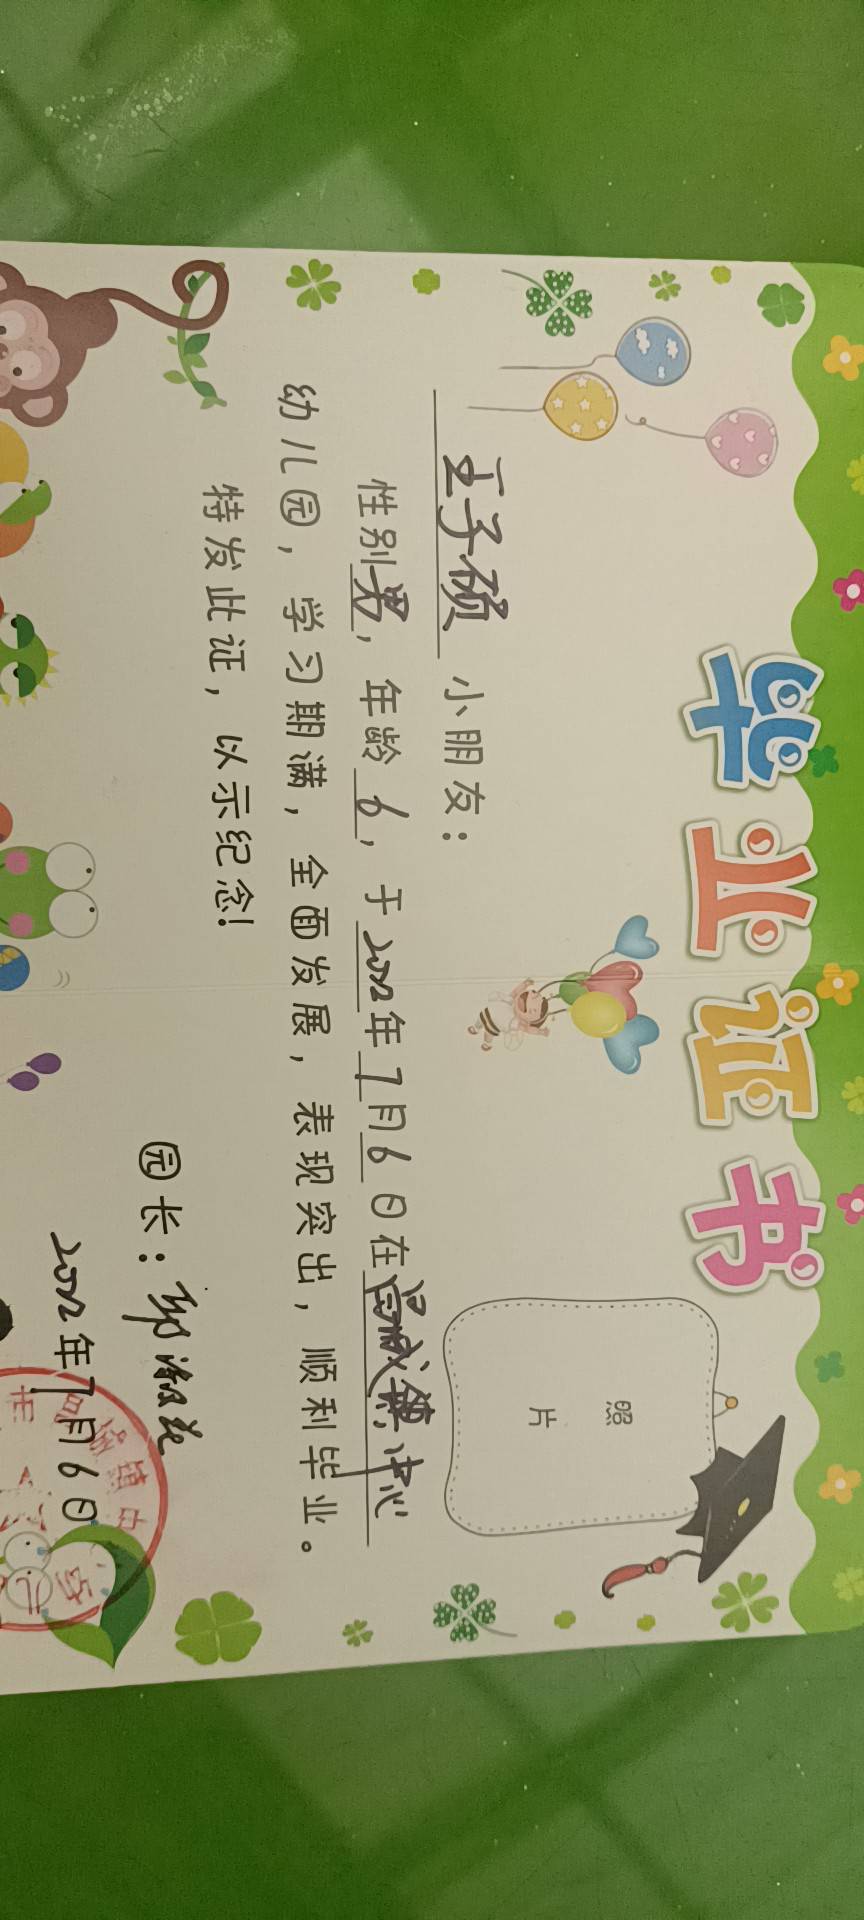 毕业证书
照片
王子硕 小朋友：
性别男，年龄6，于2022年7月6日在吕城镇中心
幼儿园，学习期满，全面发展，表现突出，顺利毕业。
特发此证，以示纪念！
园长：
2022年7月6日